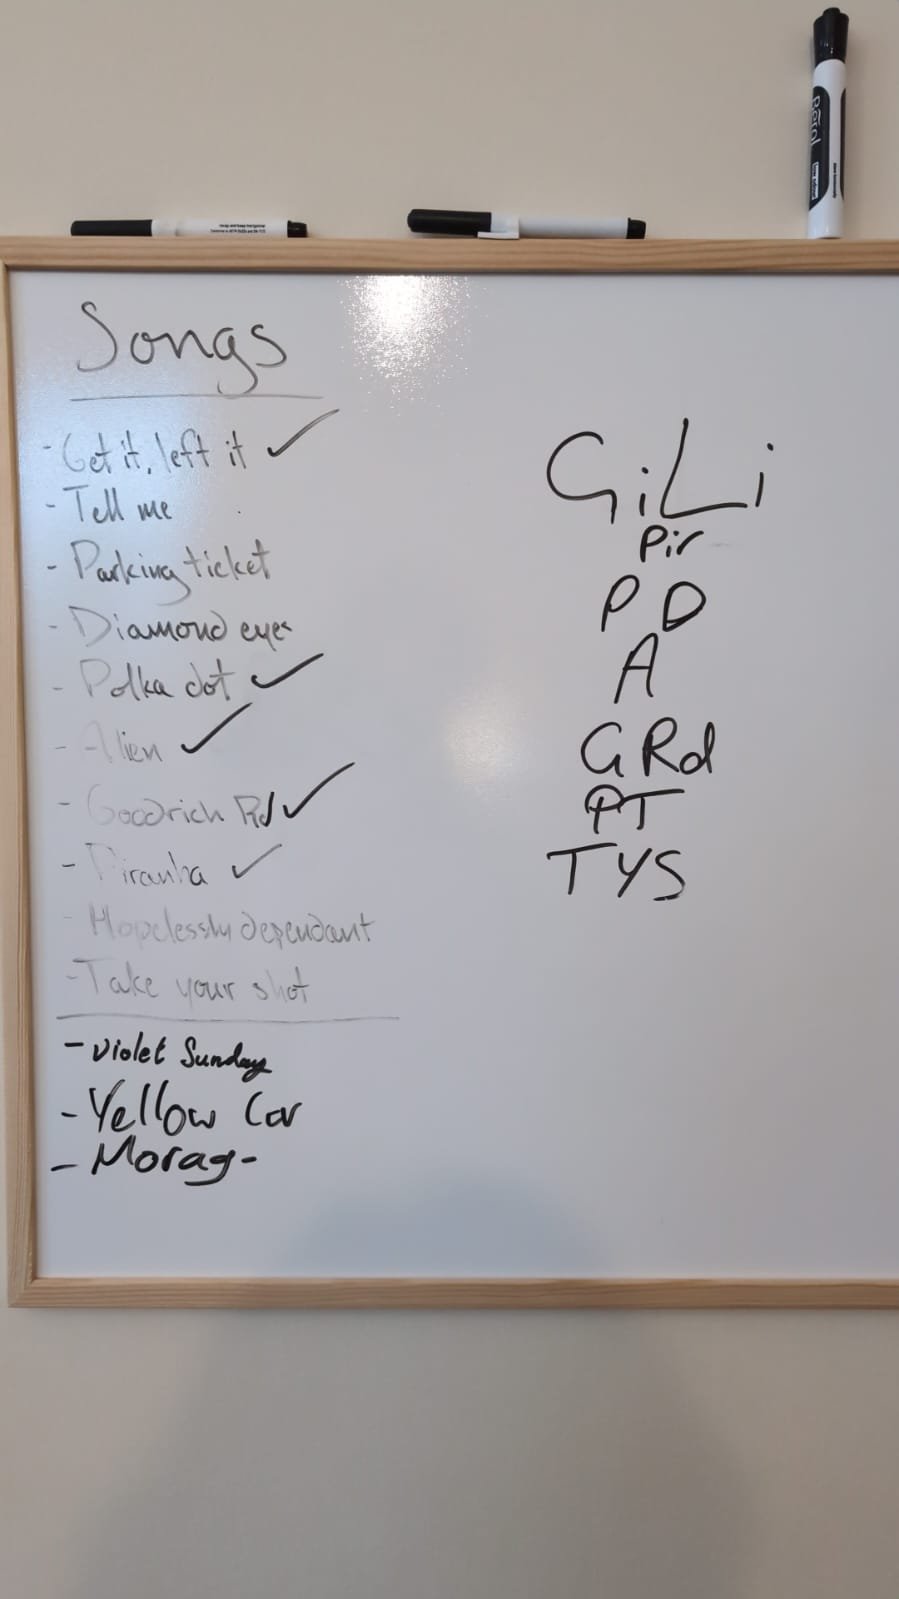 Songs
- Get it, left it ✓
- Tell me
- Parking ticket
- Diamond eyes
- Polka dot ✓
- Alien ✓
- Goodrich Rd ✓
- Piranha ✓
- Hopelessly dependant
- Take your shot
- Violet Sunday
- Yellow Car
- Morag -
GiLi
Pir
P D
A
G Rd
PT
TYS